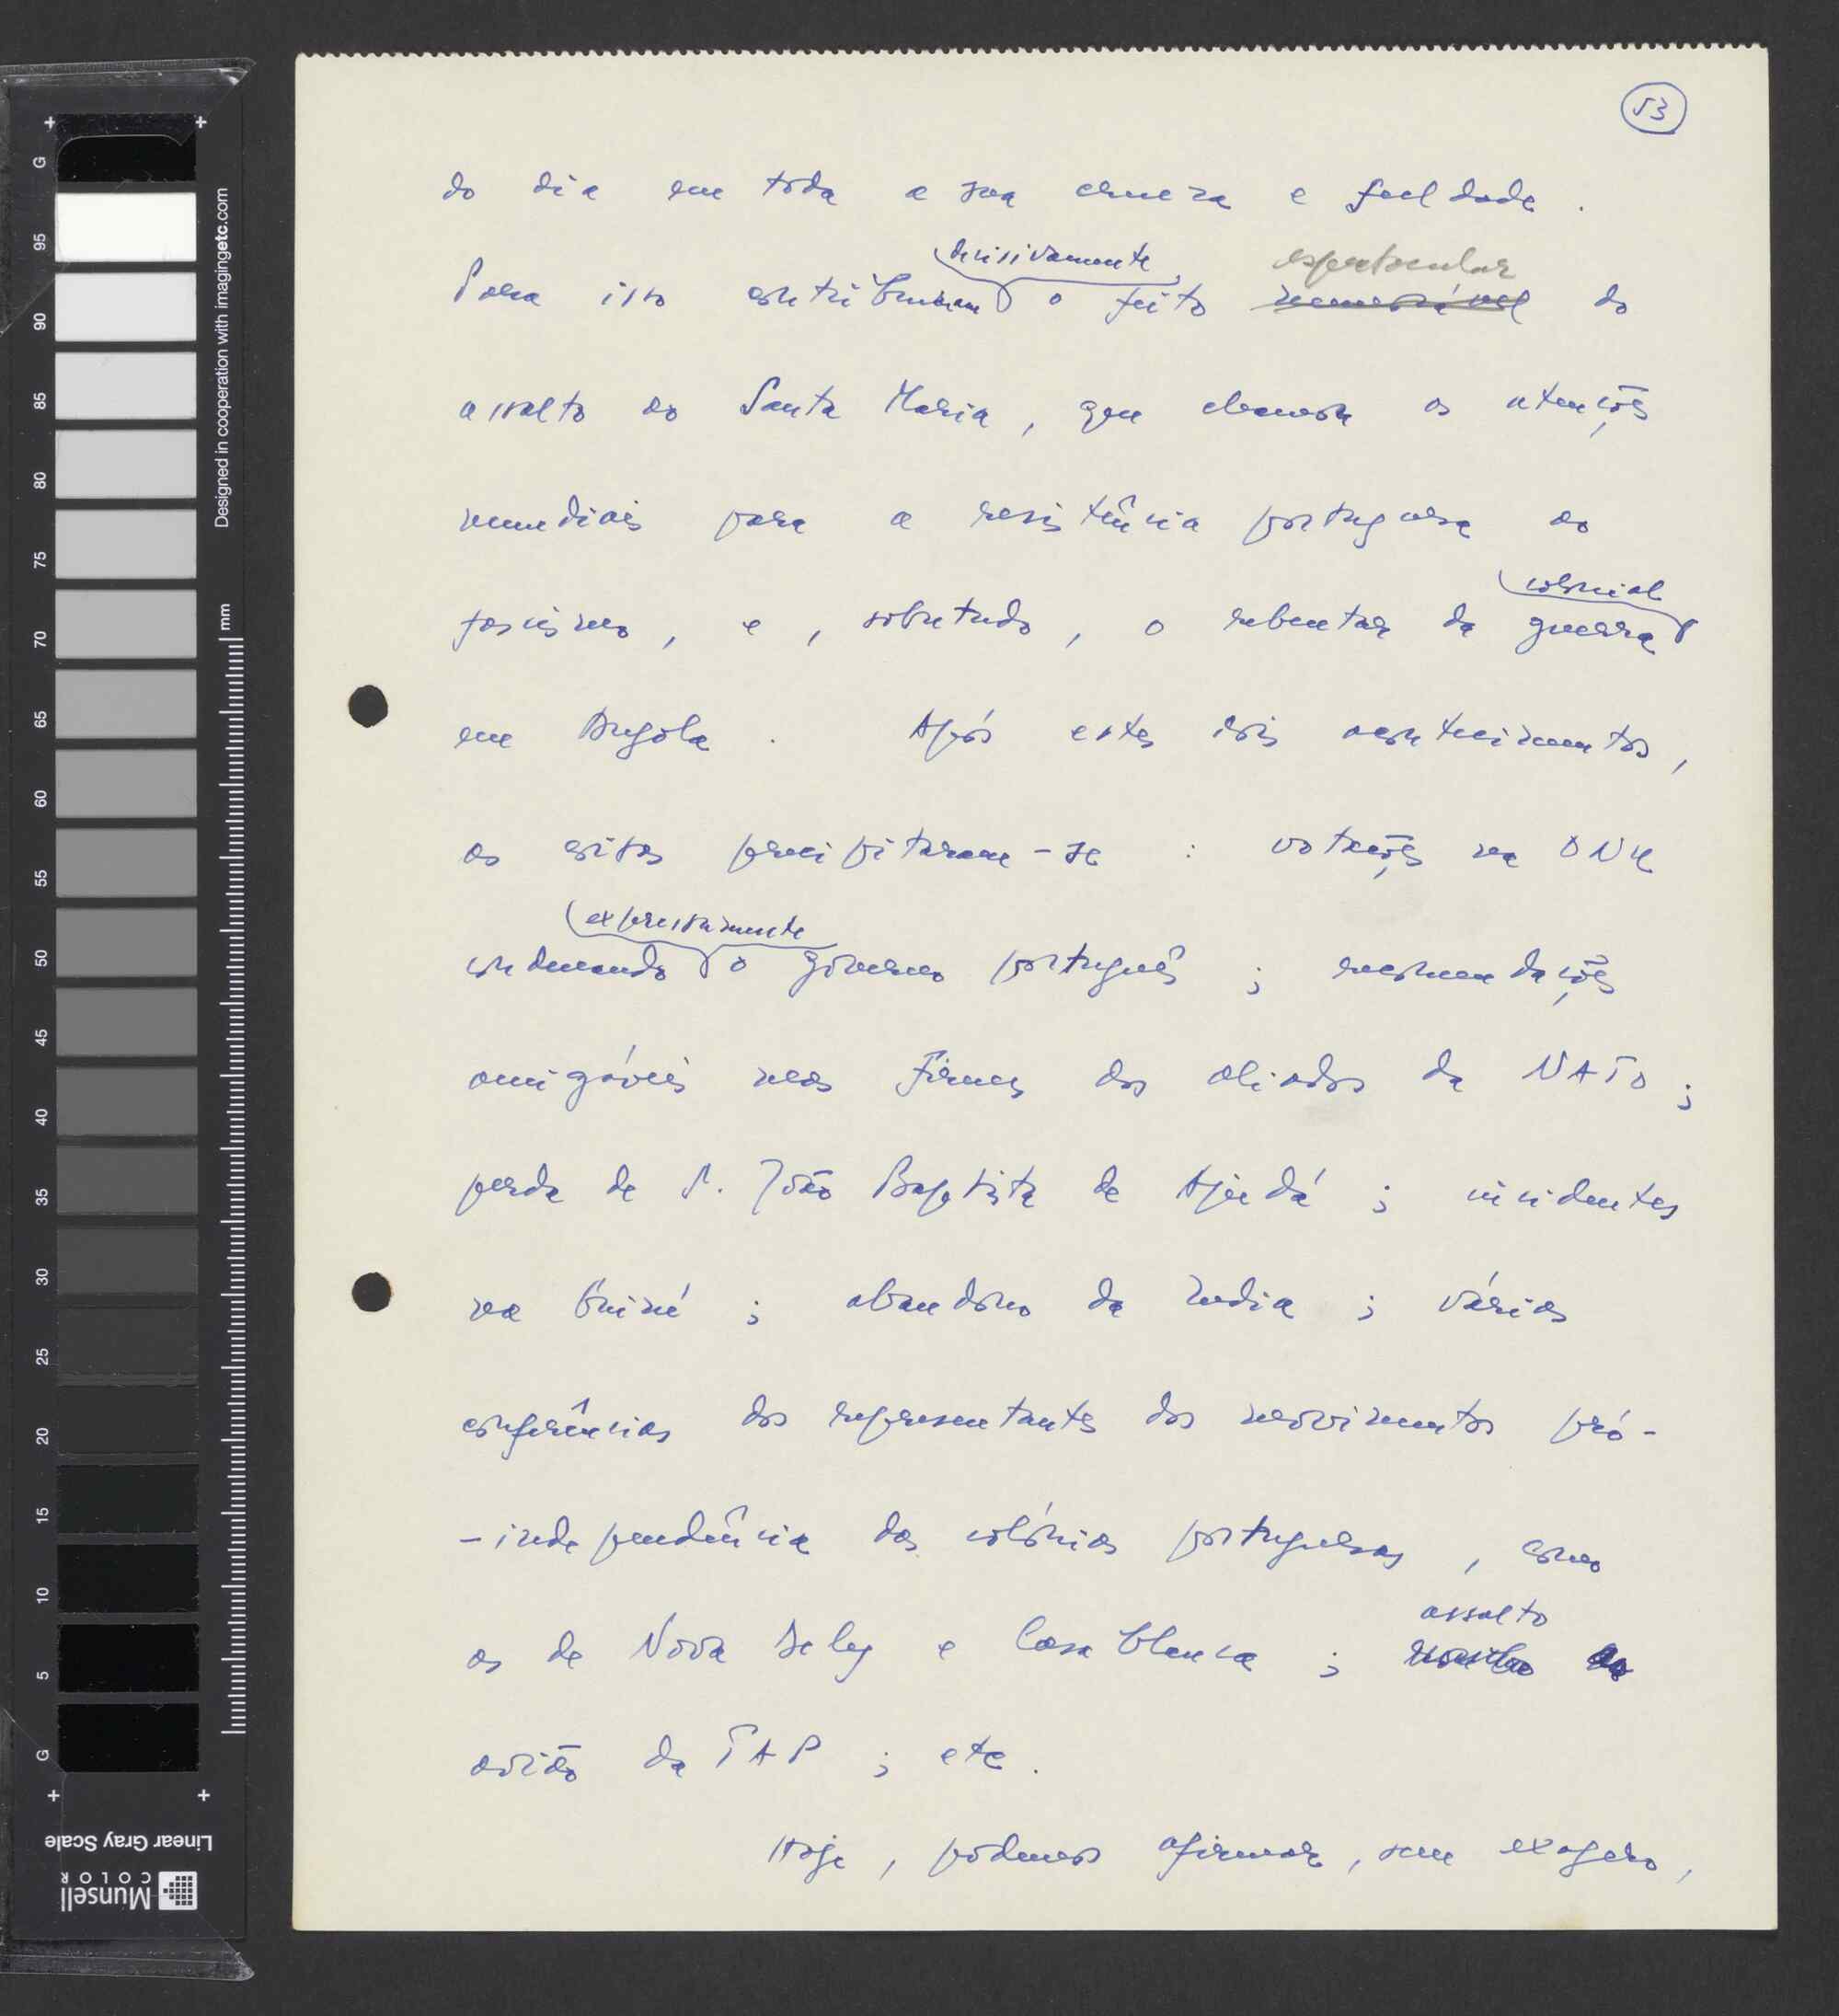 53
do dia em toda a sua crueza e fealdade .
decisivamente espectacular
Para isso contribuiram o feito memorável do
assalto ao Santa Maria, que chamou as atenções
mundiais para a resistência portuguesa ao
colonial
fascismo, e, sobretudo, o rebentar da guerra
em Angola . Após estes dois acontecimentos,
as coisas precipitaram-se : votações na ONU
expressamente
condenando o govêrno português ; recomendações
amigáveis mas firmes dos aliados da NATO ;
perda de S. João Baptista de Ajudá ; incidentes
na Guiné ; abandono da India ; várias
conferências dos representantes dos movimentos pró-
-independência das colónias portuguesas , como
as de Nova Deley e Casa Blanca ;
assalto
avião da TAP ; etc.
Hoje, podemos afirmar, sem exagero,
G 95 90 85 80 75 70 65 60 55 50 45 40 35 30 25 20 15 10 5 G
Designed in cooperation with imagingetc.com
mm
Munsell
COLOR
Linear Gray Scale